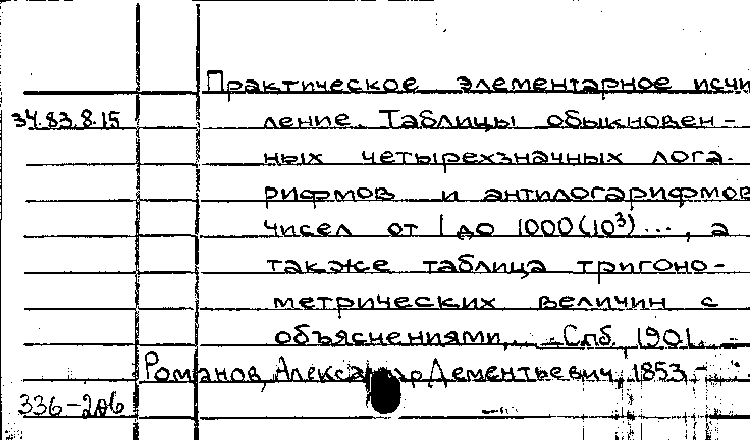 Практическое элементарное исчи
34.83.8.15 ление. Таблицы обыкновен-
ных четырехзначных лога-
рифмов и антилогарифмов
чисел от 1 до 1000 (10³)..., а
также таблица тригоно-
метрических величин с
объяснениями... -Спб, 1901. -
Романов, Александр Дементьевич, 1853 -
336-206